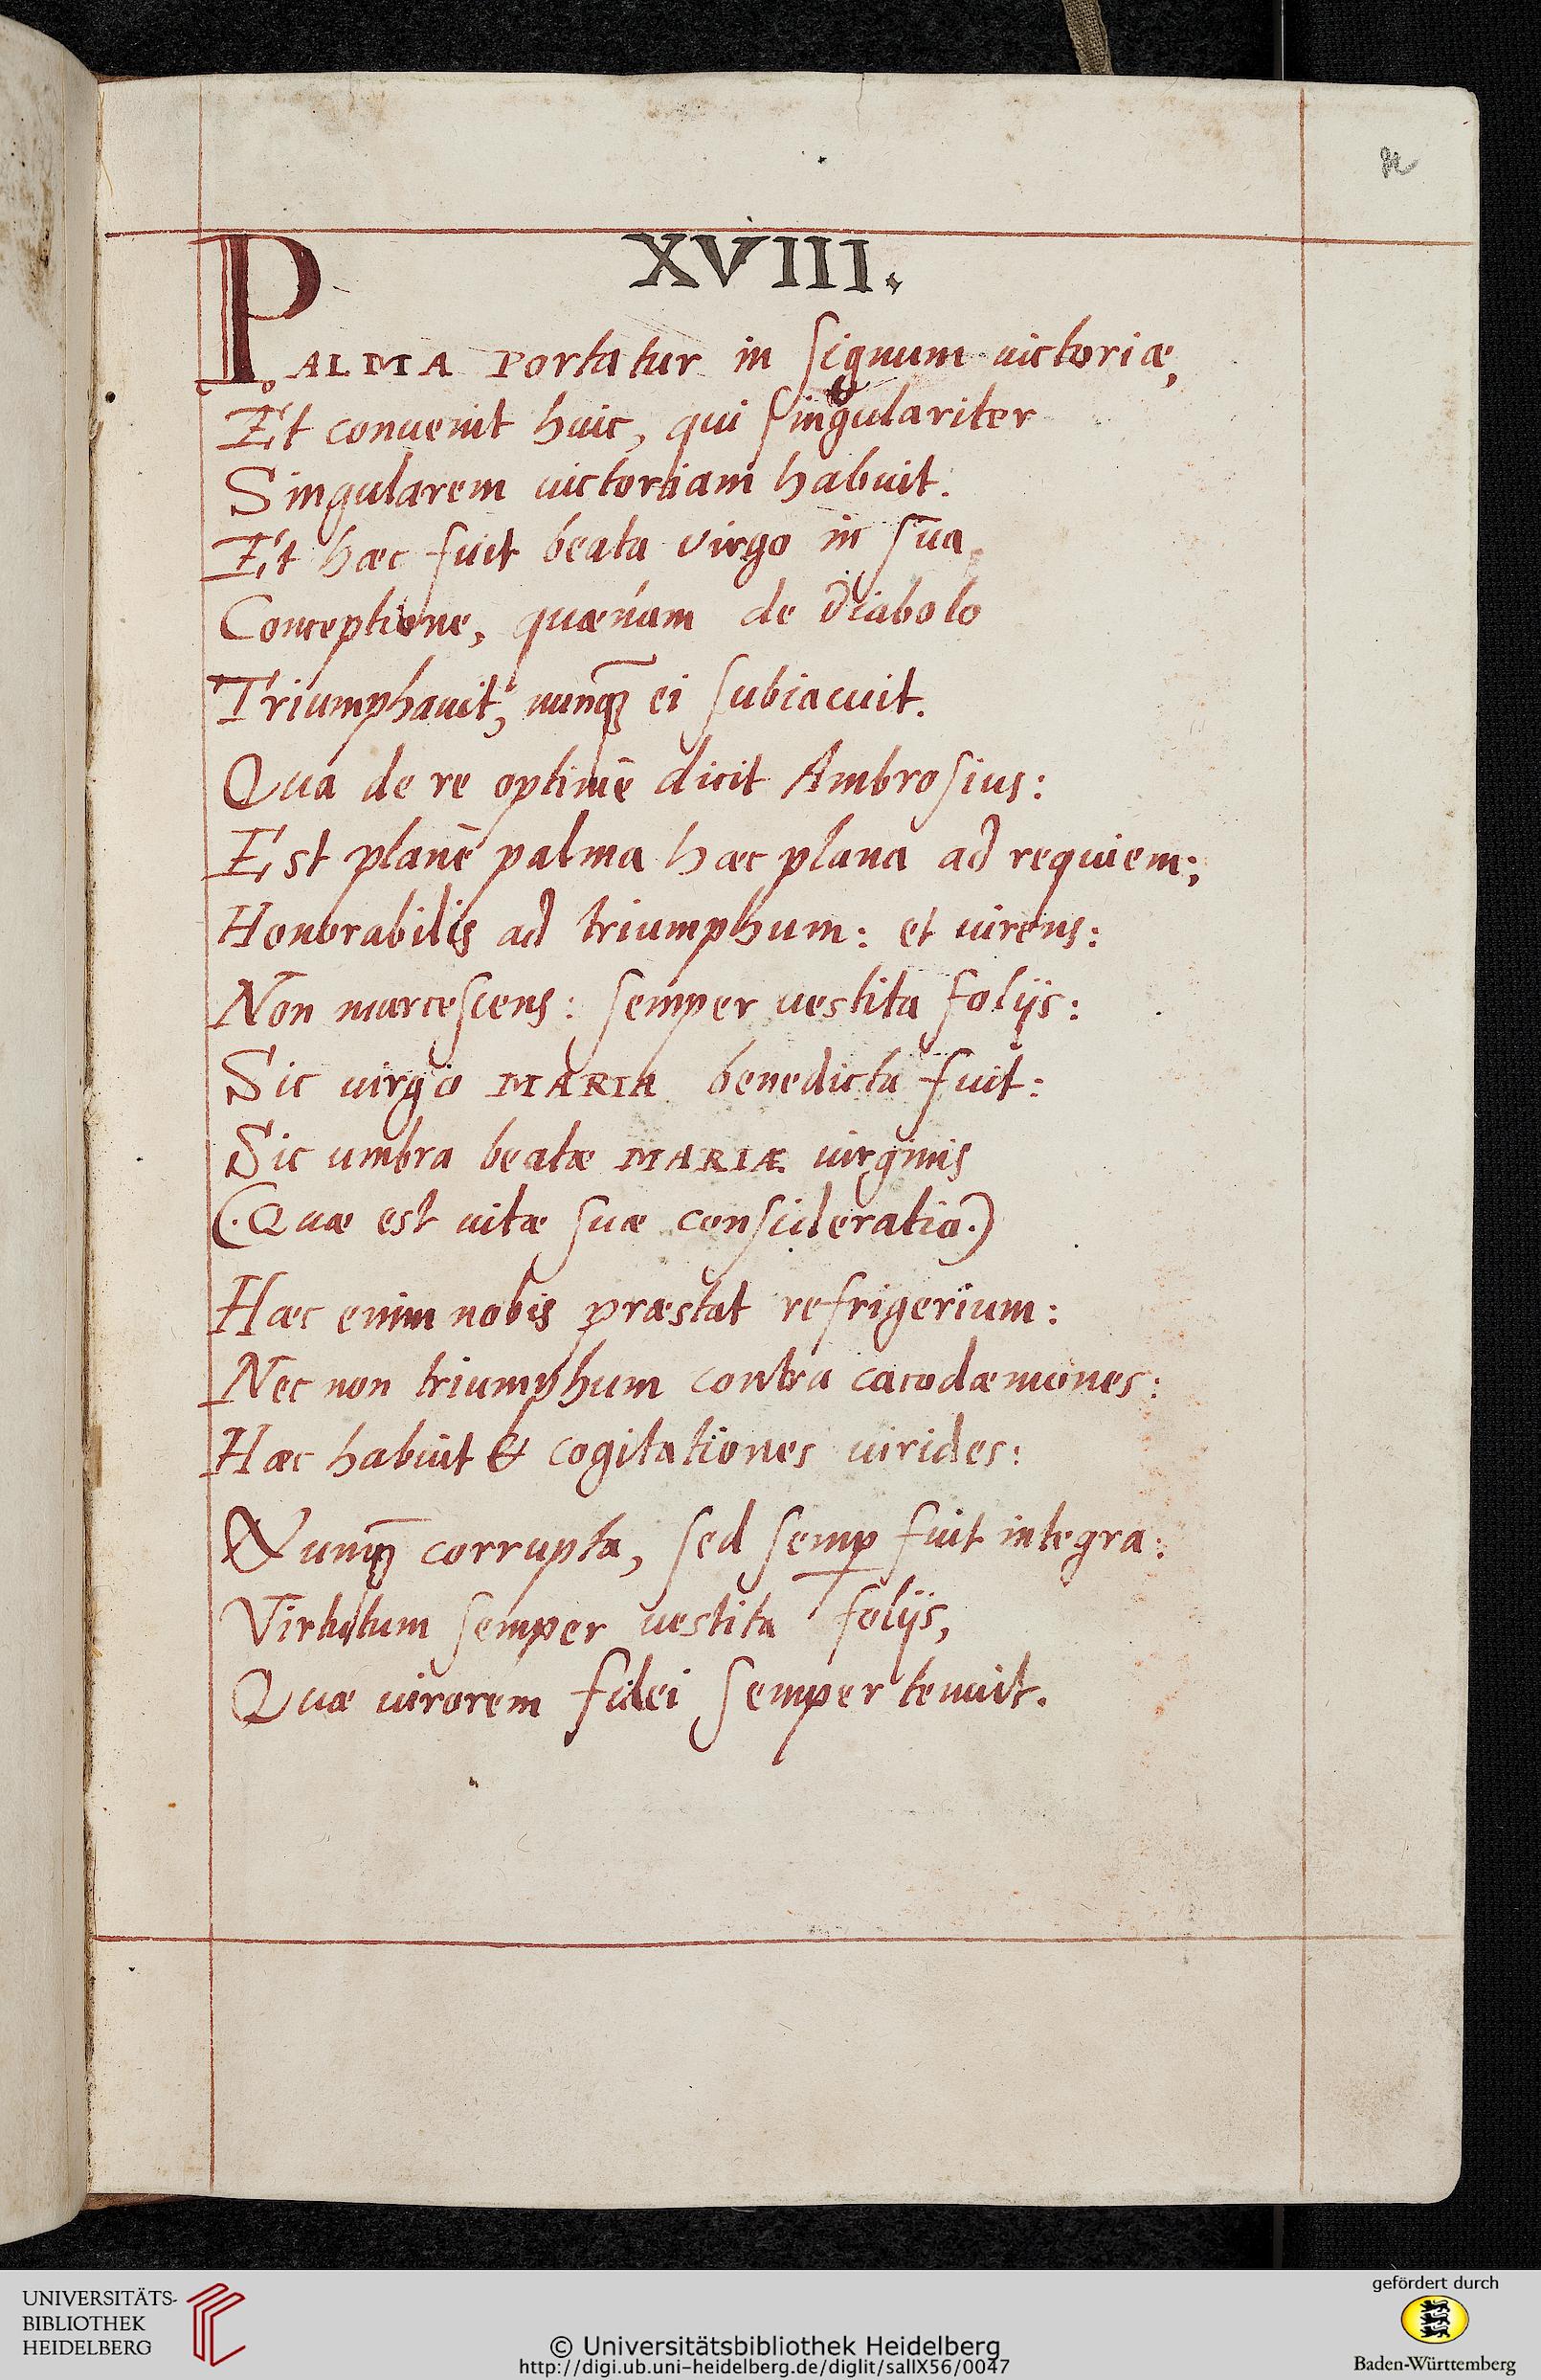 XVIII.
PALMA portatur in signum uictoriæ,
Et conuenit huic, qui singulariter
Singularem uictoriam habuit.
Et hæc fuit beata virgo in sua
Conceptione, quænam de diabolo
Triumphauit, nunqȝ ei subiacuit.
Qua de re optimè dicit Ambrosius:
Est planè palma hæc plana ad requiem;
Honorabilis ad triumphum: et uirens:
Non marcescens: semper uestita folijs:
Sic uirgo MARIA benedicta fuit:
Sic umbra beatæ MARIÆ uirginis
(.Quæ est uitæ suæ consideratio.)
Hæc enim nobis præstat refrigerium:
Nec non triumphum contra cacodæmones:
Hæc habuit & cogitationes uirides:
Nunqȝ corrupta, sed semꝑ fuit integra:
Virtutum semper uestita folijs,
Quæ uirorem fidei semper tenuit.
UNIVERSITÄTS-
BIBLIOTHEK
HEIDELBERG
© Universitätsbibliothek Heidelberg
http://digi.ub.uni-heidelberg.de/diglit/salIX56/0047
gefördert durch
Baden-Württemberg